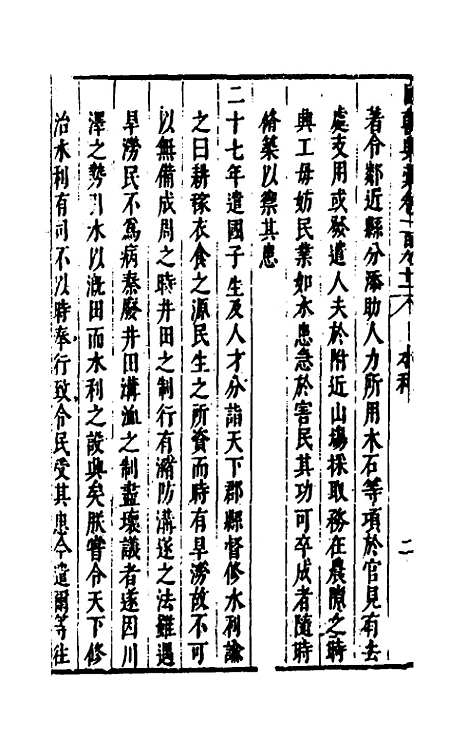 國朝典彙卷一百九十一 水利 二
著令鄰近縣分添助人力所用木石等項於官見有去
處支用或發遣人夫於附近山塲採取務在農隙之時
興工毋妨民業如水患急於害民其功可卒成者隨時
脩築以禦其患
二十七年遣國子生及人才分詣天下郡縣督修水利諭
之曰耕稼衣食之源民生之所資而時有旱澇故不可
以無備成周之時井田之制行有瀦防溝遂之法雖遇
旱澇民不爲病秦廢井田溝洫之制盡壞議者遂因川
澤之勢引水以溉田而水利之設興矣朕嘗令天下修
治水利有司不以時奉行致令民受其患今遣爾等往